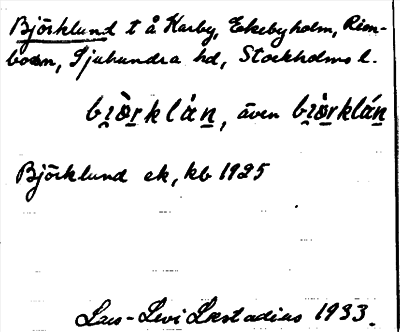 Björklund t å Karby, Ekebyholm, Rim-
boen, Sjuhundra hd, Stockholms l.
bi̯ò̈r̠klàn̠, även bi̯ò̈r̠klán̠
Björklund ek, kb 1925
Lars-Levi Læstadius 1933.